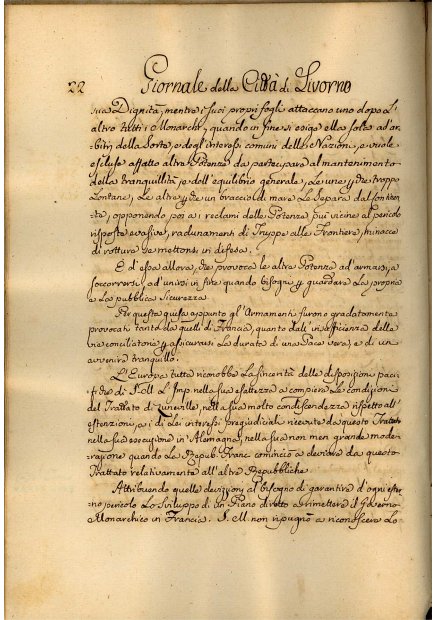 22 Giornale della Città di Livorno
sua Dignità, mentre i suoi propri fogli attaccano uno dopo l'
altro tutti i Monarchi, quando in fine si erige ella sola ad ar-
bitri della Sorte, e degl'interessi comuni delle Nazioni, e vuole
escluse affatto altre Potenze da partecipare al mantenimento
della tranquillità, e dell'equilibrio generale, Le une perche troppo
lontane, Le altre perche un braccio di mare Le separa dal Contin-
te, opponendo poi ai reclami delle Potenze più vicine al pericolo
risposte evasive, radunamenti di Truppe alle Frontiere, minacce
di rottura se mettonsi in difesa.
E d'essa allora, che provoca le altre Potenze ad'armarsi, a
soccorrersi, ad'unirsi in fine quando bisogni per guardare La propria
e La pubblica Sicurezza
Per questa guisa appunto gl'Armamenti furono gradatamente
provocati tanto da quelli di Francia, quanto dall'insufficienza delle
vie conciliatorie per assicurarsi La durata di una Pace vera, e di un
avvenire tranquillo.
L'Europa tutta riconobbe La sincerità delle disposizioni paci-
fiche di S. M. L'Imp. nella sua esattezza a compiere Le condizioni
del Trattato di Luneville, nella sua molto condiscendenza rispetto all'
estenzione, a i di Lei interessi pregiudiciale ricevuta da questo Trattato
nella sua esecuzione in Alemagna, nella sua non men grande mode-
razione quando La Repub. Franc. cominciò a deviare da questo
Trattato relativamente all'altre Repubbliche.
Attribuendo quelle deviazioni al bisogno di garantire d'ogni ester-
no pericolo Lo sviluppo di un Piano diretto a rimettere il Governo
Monarchico in Francia. S. M. non ripugnò a riconoscere Lo